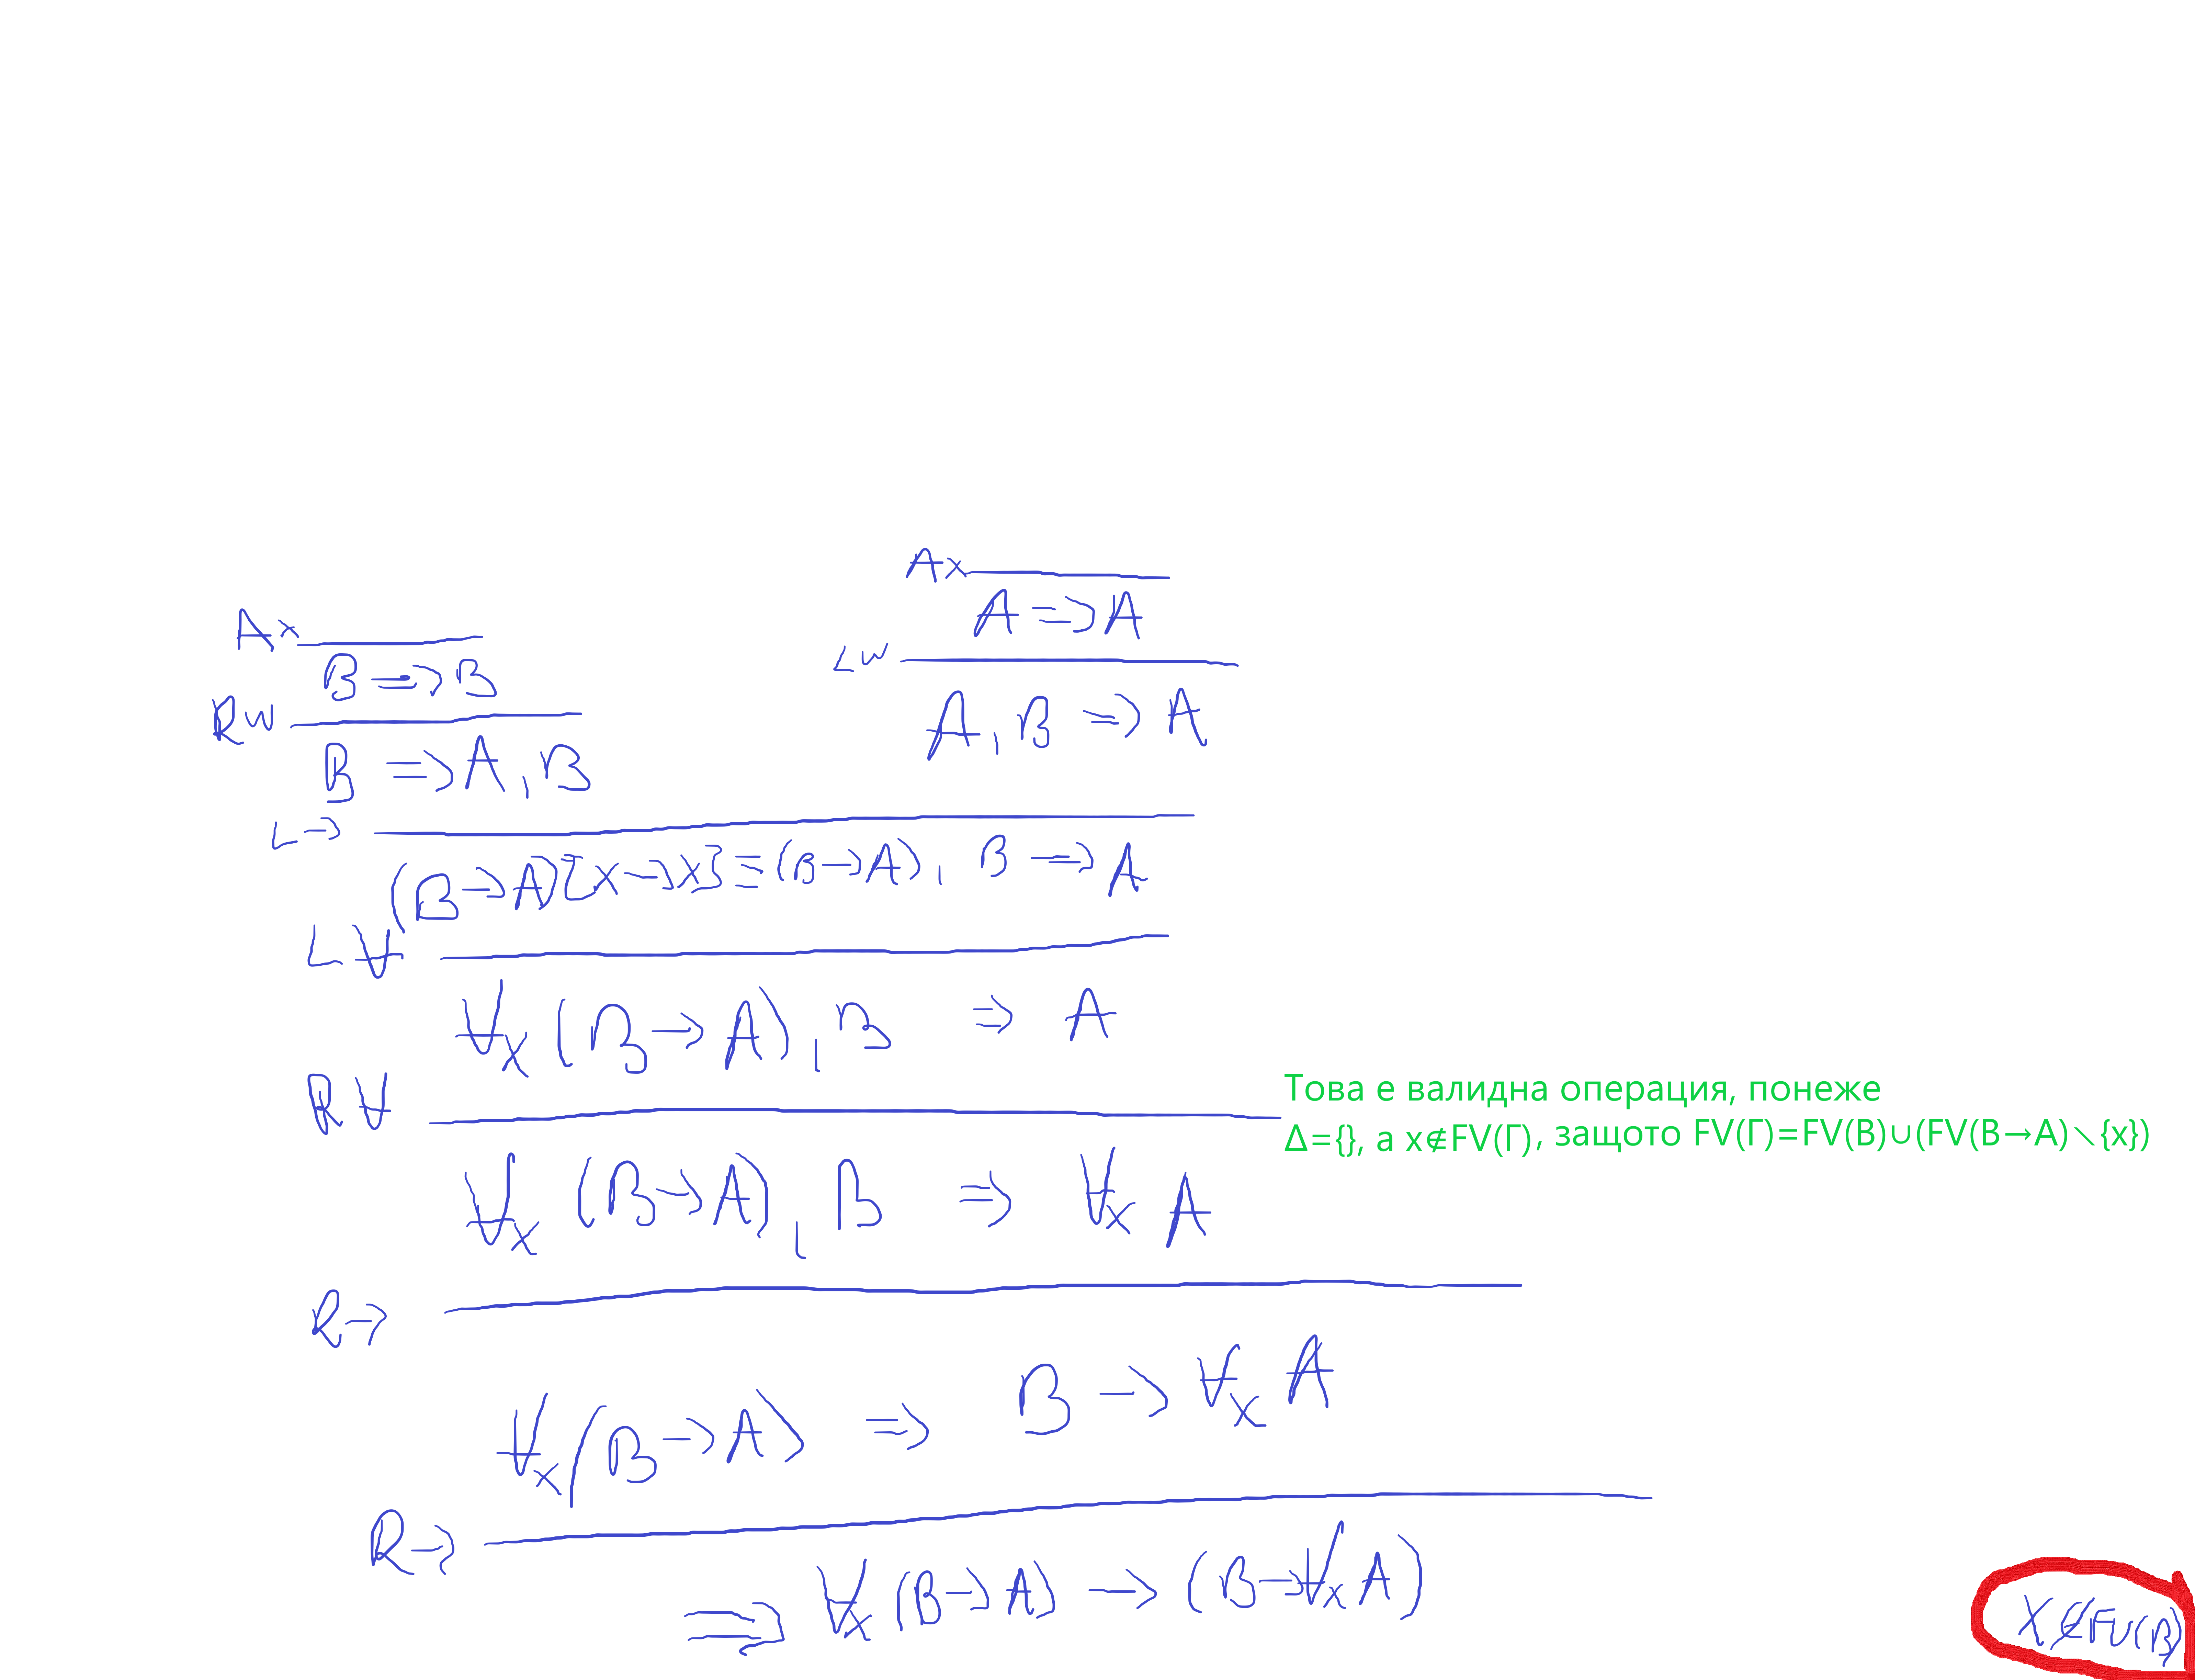 Ax
A ⇒ A
Ax
B ⇒ B
Lw
A, B ⇒ A
Rw
B ⇒ A, B
L→
(B→A)[x→x] ≡ (B→A), B ⇒ A
L∀
∀x (B→A), B ⇒ A
R∀
Това е валидна операция, понеже
Δ={}, а x∉FV(Γ), защото FV(Γ)=FV(B)∪(FV(B→A)∖{x})
∀x (B→A), B ⇒ ∀x A
R→
∀x (B→A) ⇒ B → ∀x A
R→
⇒ ∀x (B→A) → (B→∀x A)